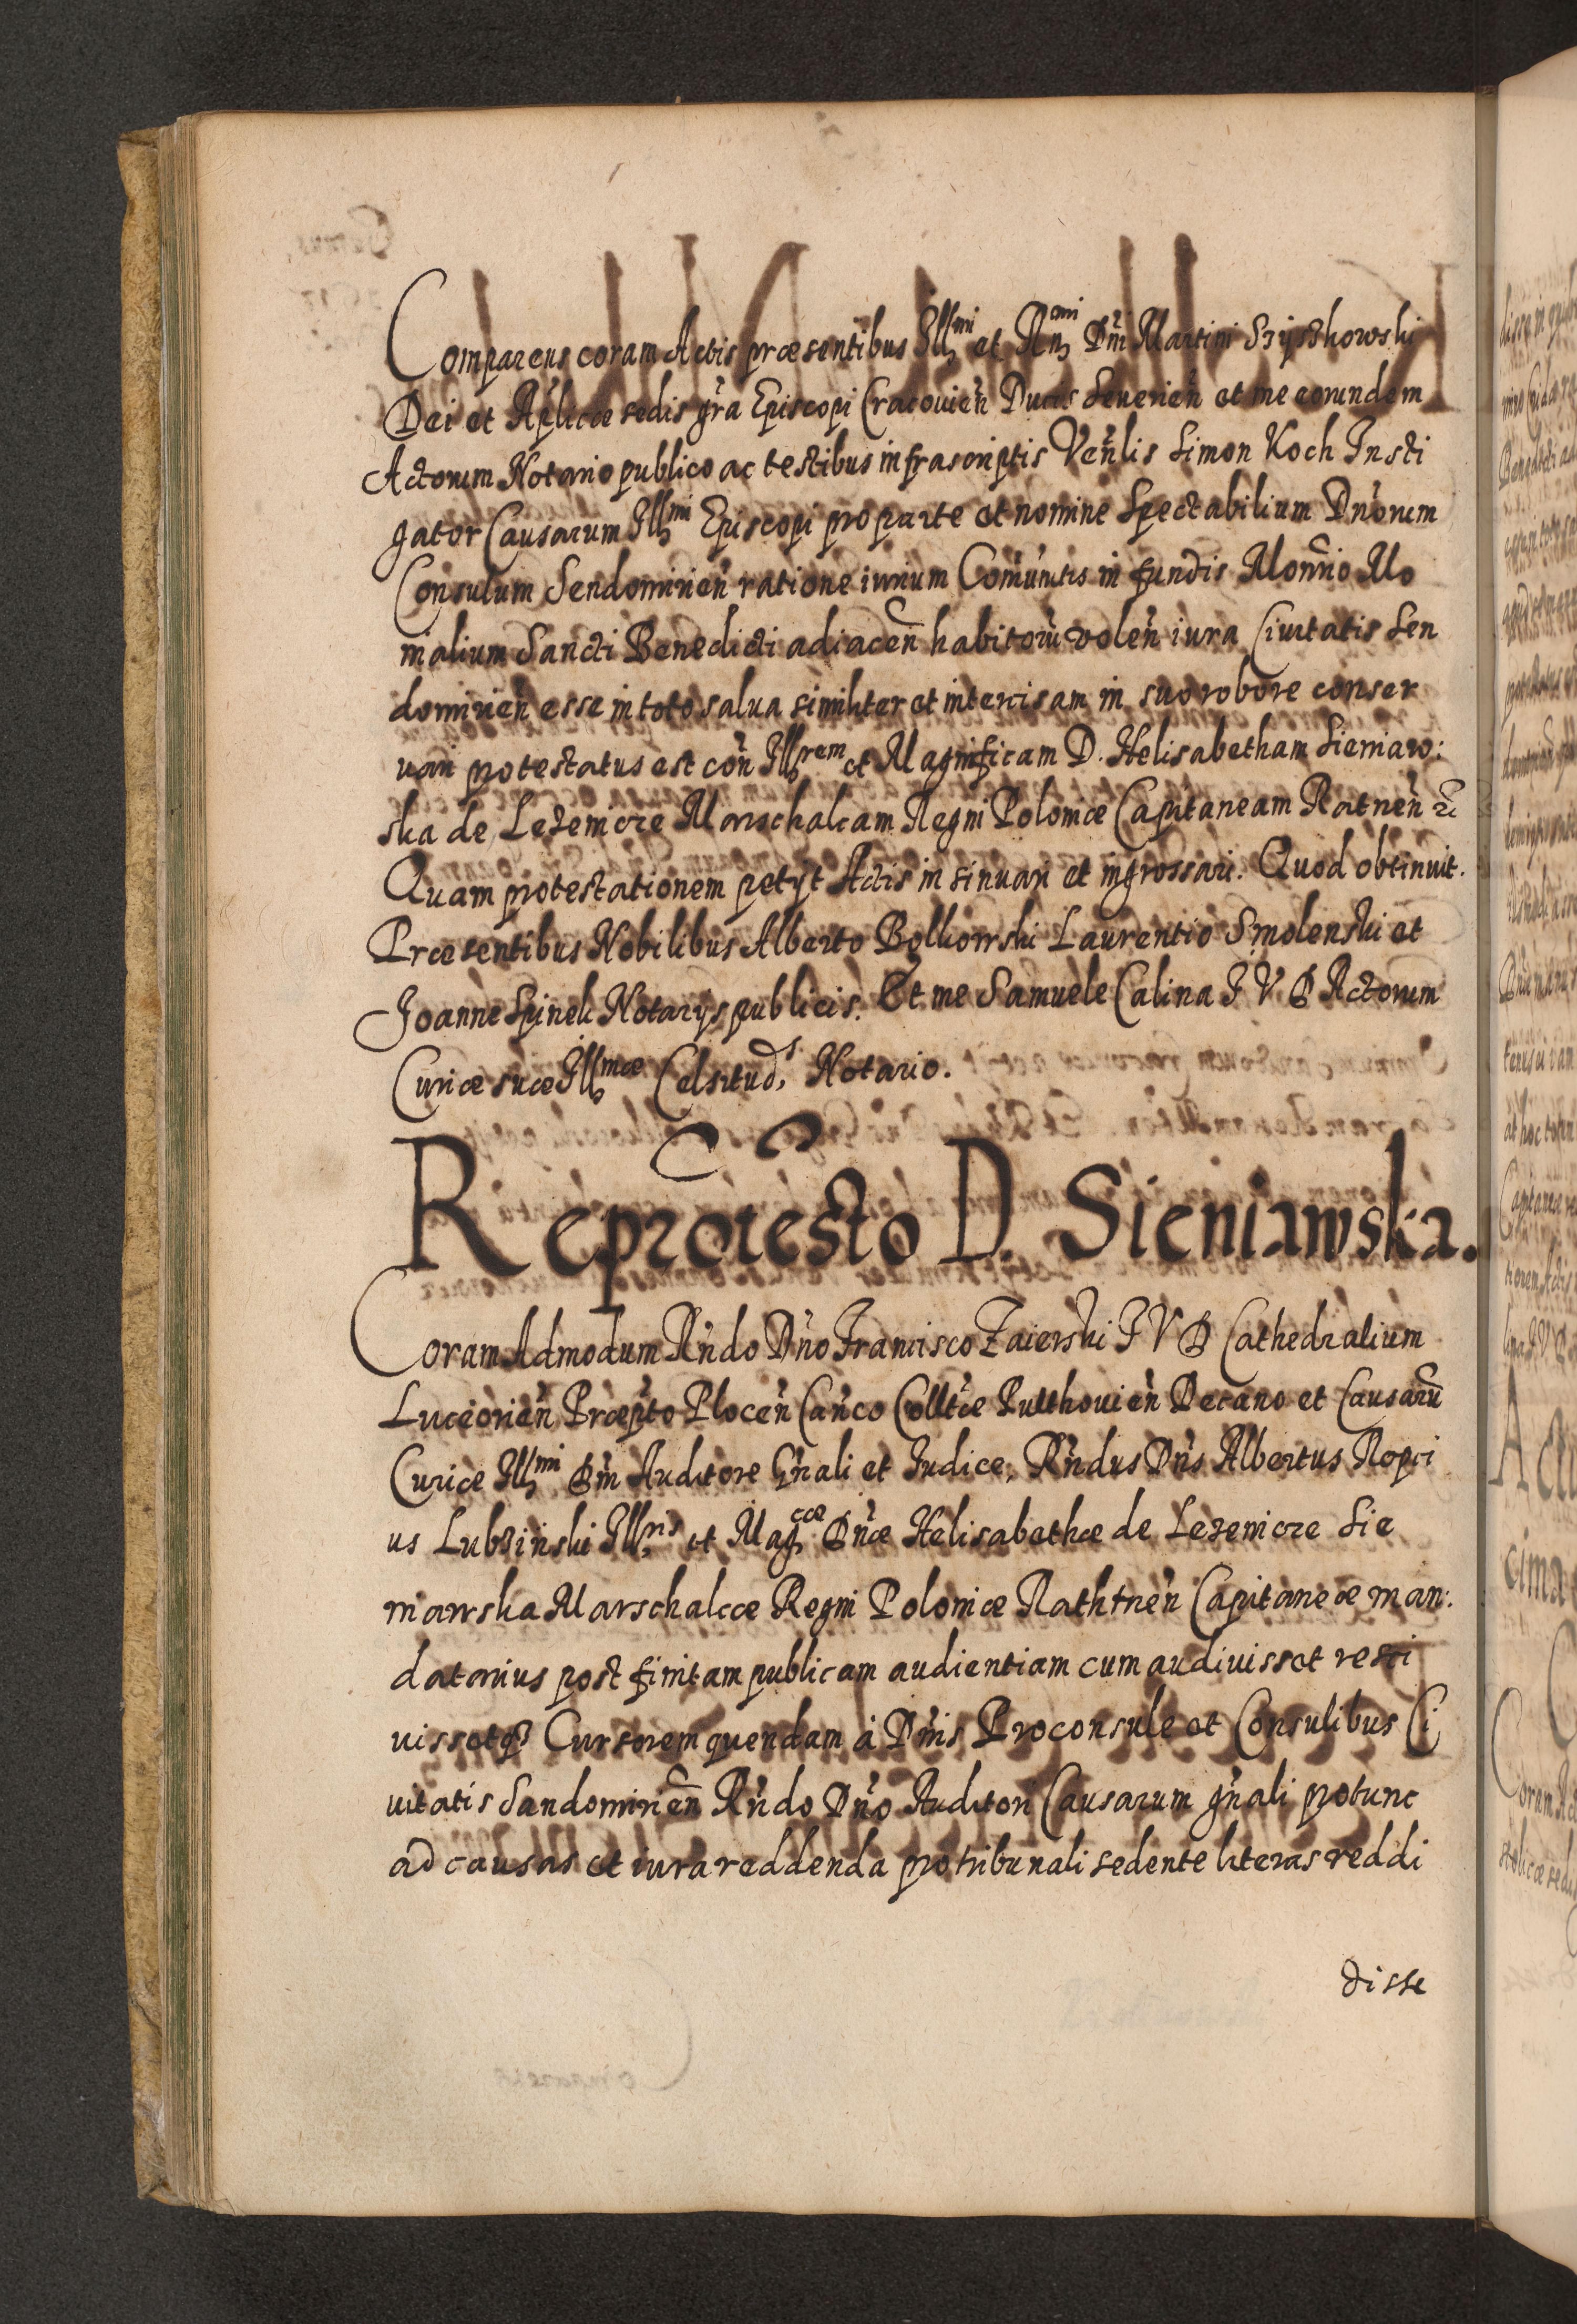 Comparens coram Actis præsentibus Illmi et Rmi Dni Martini Szyszkowski
Dei et Aplicæ sedis gra Episcopi Cracovien Ducis Severien et me eorundem
Actorum Notario publico ac testibus infrascriptis Venlis Simon Koch Insti
gator Causarum Illmi Episcopi pro parte et nomine Spectabilium Dnorum
Consulum Sendomirien ratione iurium Comunitis in fundis Monrio Mo
nialium Sancti Benedicti adiacen habitorū volen iura Civitatis Sen
domirien esse in toto salua similiter et intercisam in suo robore conser
uari protestatus est con Illrem et Magnificam D. Helisabetham Sieniaw:
ska de Lezenicze Marschalcam Regni Poloniæ Capitaneam Ratnen etc
Quam protestationem petyt Actis insinuari et ingrossari. Quod obtinuit.
Præsentibus Nobilibus Alberto Bolkowski Laurentio Smolenski et
Joanne Spinek Notarys publicis. Et me Samuele Calina I V D Actorum
Curiæ suæ Illmæ Celsitud. Notario.
Reprotesto D. Sieniawska.
Coram Admodum Rndo Dno Francisco Zaierski I V D Cathedralium
Luceorien Præpto Plocen Canco Colltæ Pulthovien Decano et Causarū
Curiæ Illmi Dni Auditore Gnali et Iudice, Rndus Dns Albertus Ropci
us Lubzinski Illris et Magcæ Dnæ Helisabethæ de Lezenicze Sie
niawska Marschalcæ Regni Poloniæ Rathtnen Capitaneæ man:
datarius post finitam publicam audientiam cum audivisset resci
uissetq3 Cursorem quendam à Dnis Proconsule et Consulibus Ci
uitatis Sandomirien Rndo Dno Auditori Causarum gnali protunc
ad causas et iura reddenda pro tribunali sedente literas reddi
disse